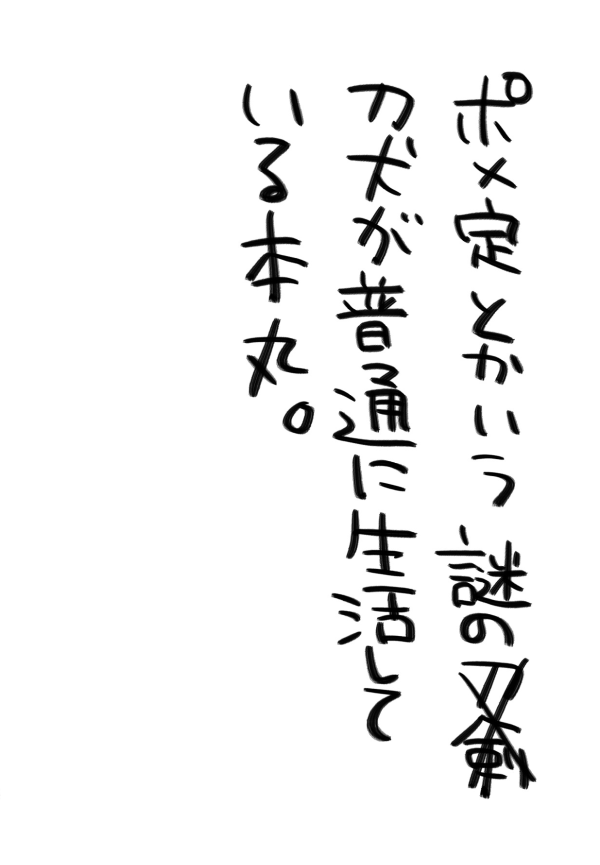 ポメ定とかいう謎の刀剣
刀犬が普通に生活して
いる本丸。